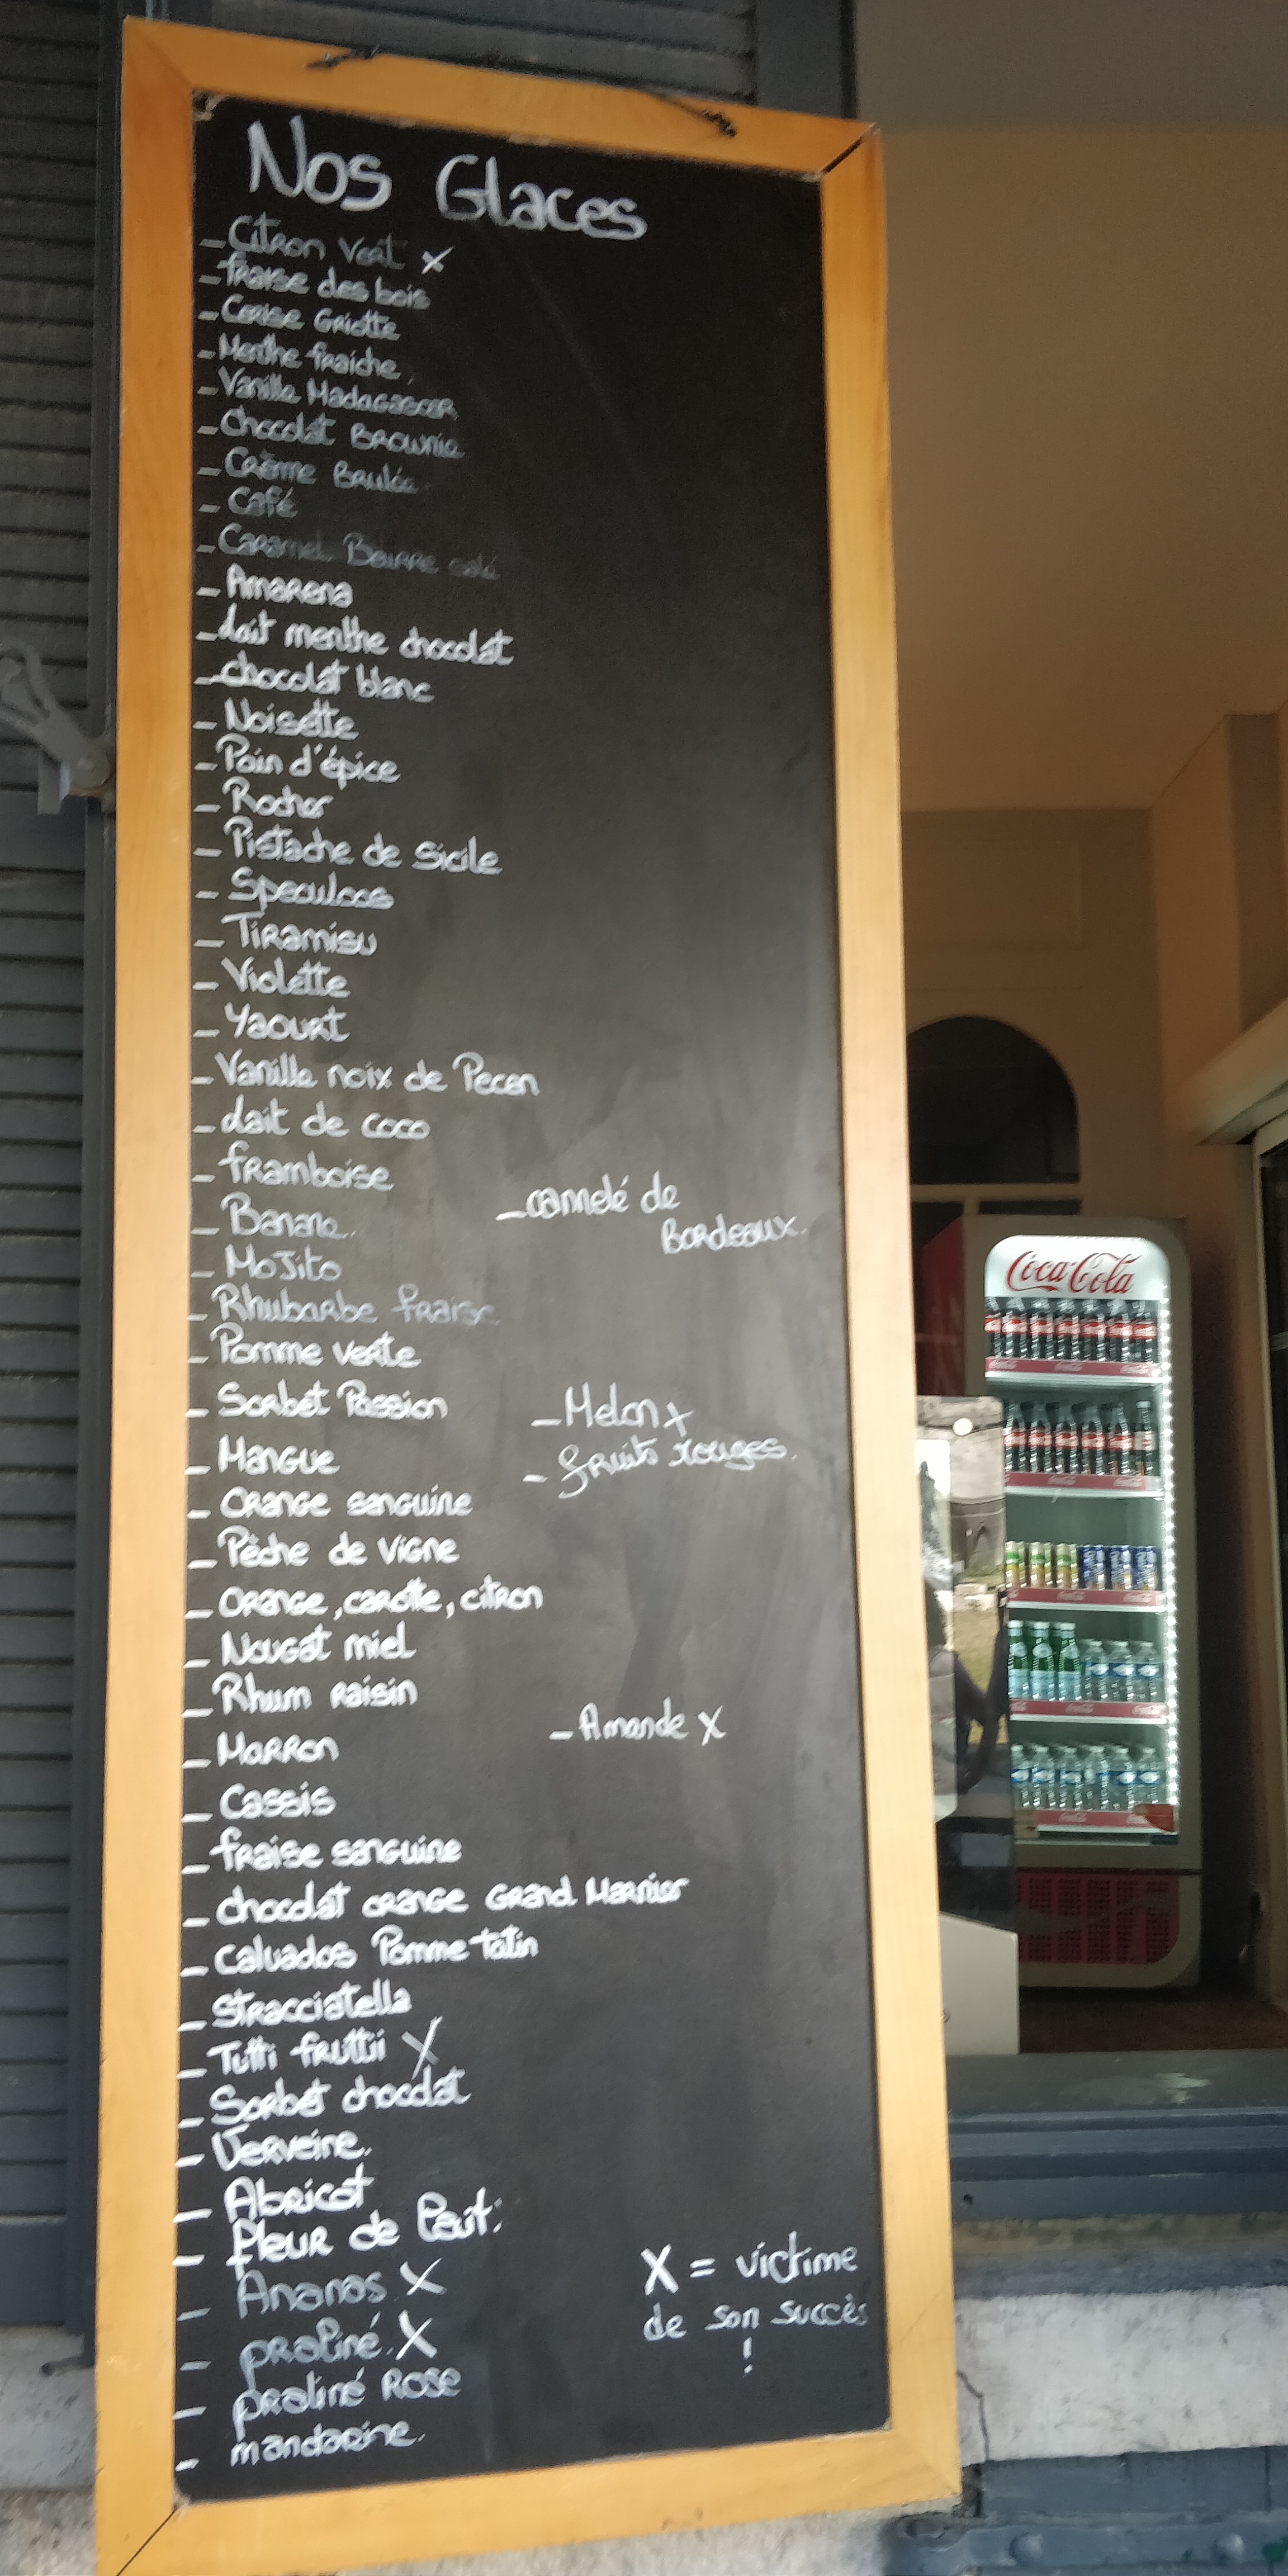 Nos Glaces
- Citron Vert x
- fraise des bois
- Cerise Griotte
- Menthe fraiche.
- Vanille Madagascar
- Chocolat Brownie
- Crème Brulée
- Café
- Caramel Beurre salé
- Amarena
- lait menthe chocolat
- chocolat blanc
- Noisette
- Pain d'épice
- Rocher
- Pistache de Sicile
- Speculoos
- Tiramisu
- Violette
- Yaourt
- Vanille noix de Pecan
- lait de coco
- framboise
- Banane.
- Mojito
- Rhubarbe fraise
- Pomme verte
- Sorbet Passion
- Mangue
- Orange sanguine
- Pêche de vigne
- Orange, carotte, citron
- Nougat miel
- Rhum raisin
- Marron
- Cassis
- fraise sanguine
- chocolat orange Grand Marnier
- Calvados Pomme tatin
- Stracciatella
- Tutti fruttii X
- Sorbet chocolat
- Verveine.
- Abricot
- fleur de lait.
- Ananas X
- praliné. X
- praliné Rose
- mandarine.
- cannelé de
Bordeaux.
- Melon x
- fruits rouges.
- Amande X
X = victime
de son succès
!
Coca-Cola